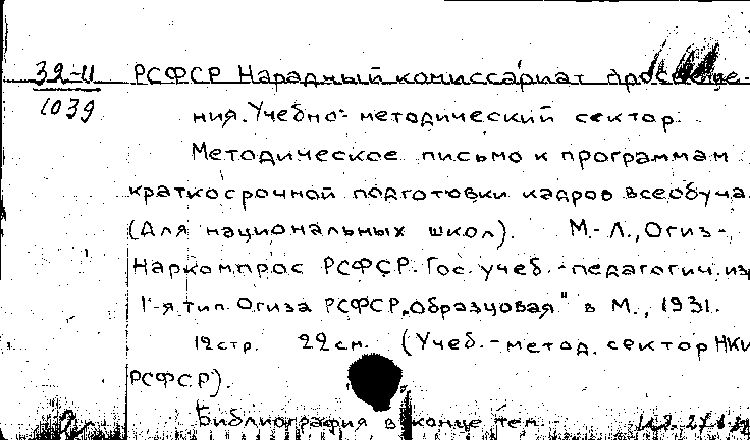 32-11 РСФСР Народный комиссариат просвеще-
1039 ния. Учебно-методический сектор.
Методическое письмо к программам
краткосрочной подготовки кадров всеобуча
(Для национальных школ). М.-Л., Огиз-,
Наркомпрос РСФСР. Гос. учеб.-педагогич. из
1-я тип. Огиза РСФСР „Образцовая" в М., 1931.
12 стр. 22 см. (Учеб.-метод. сектор НК
РСФСР).
Библиография в конце тем